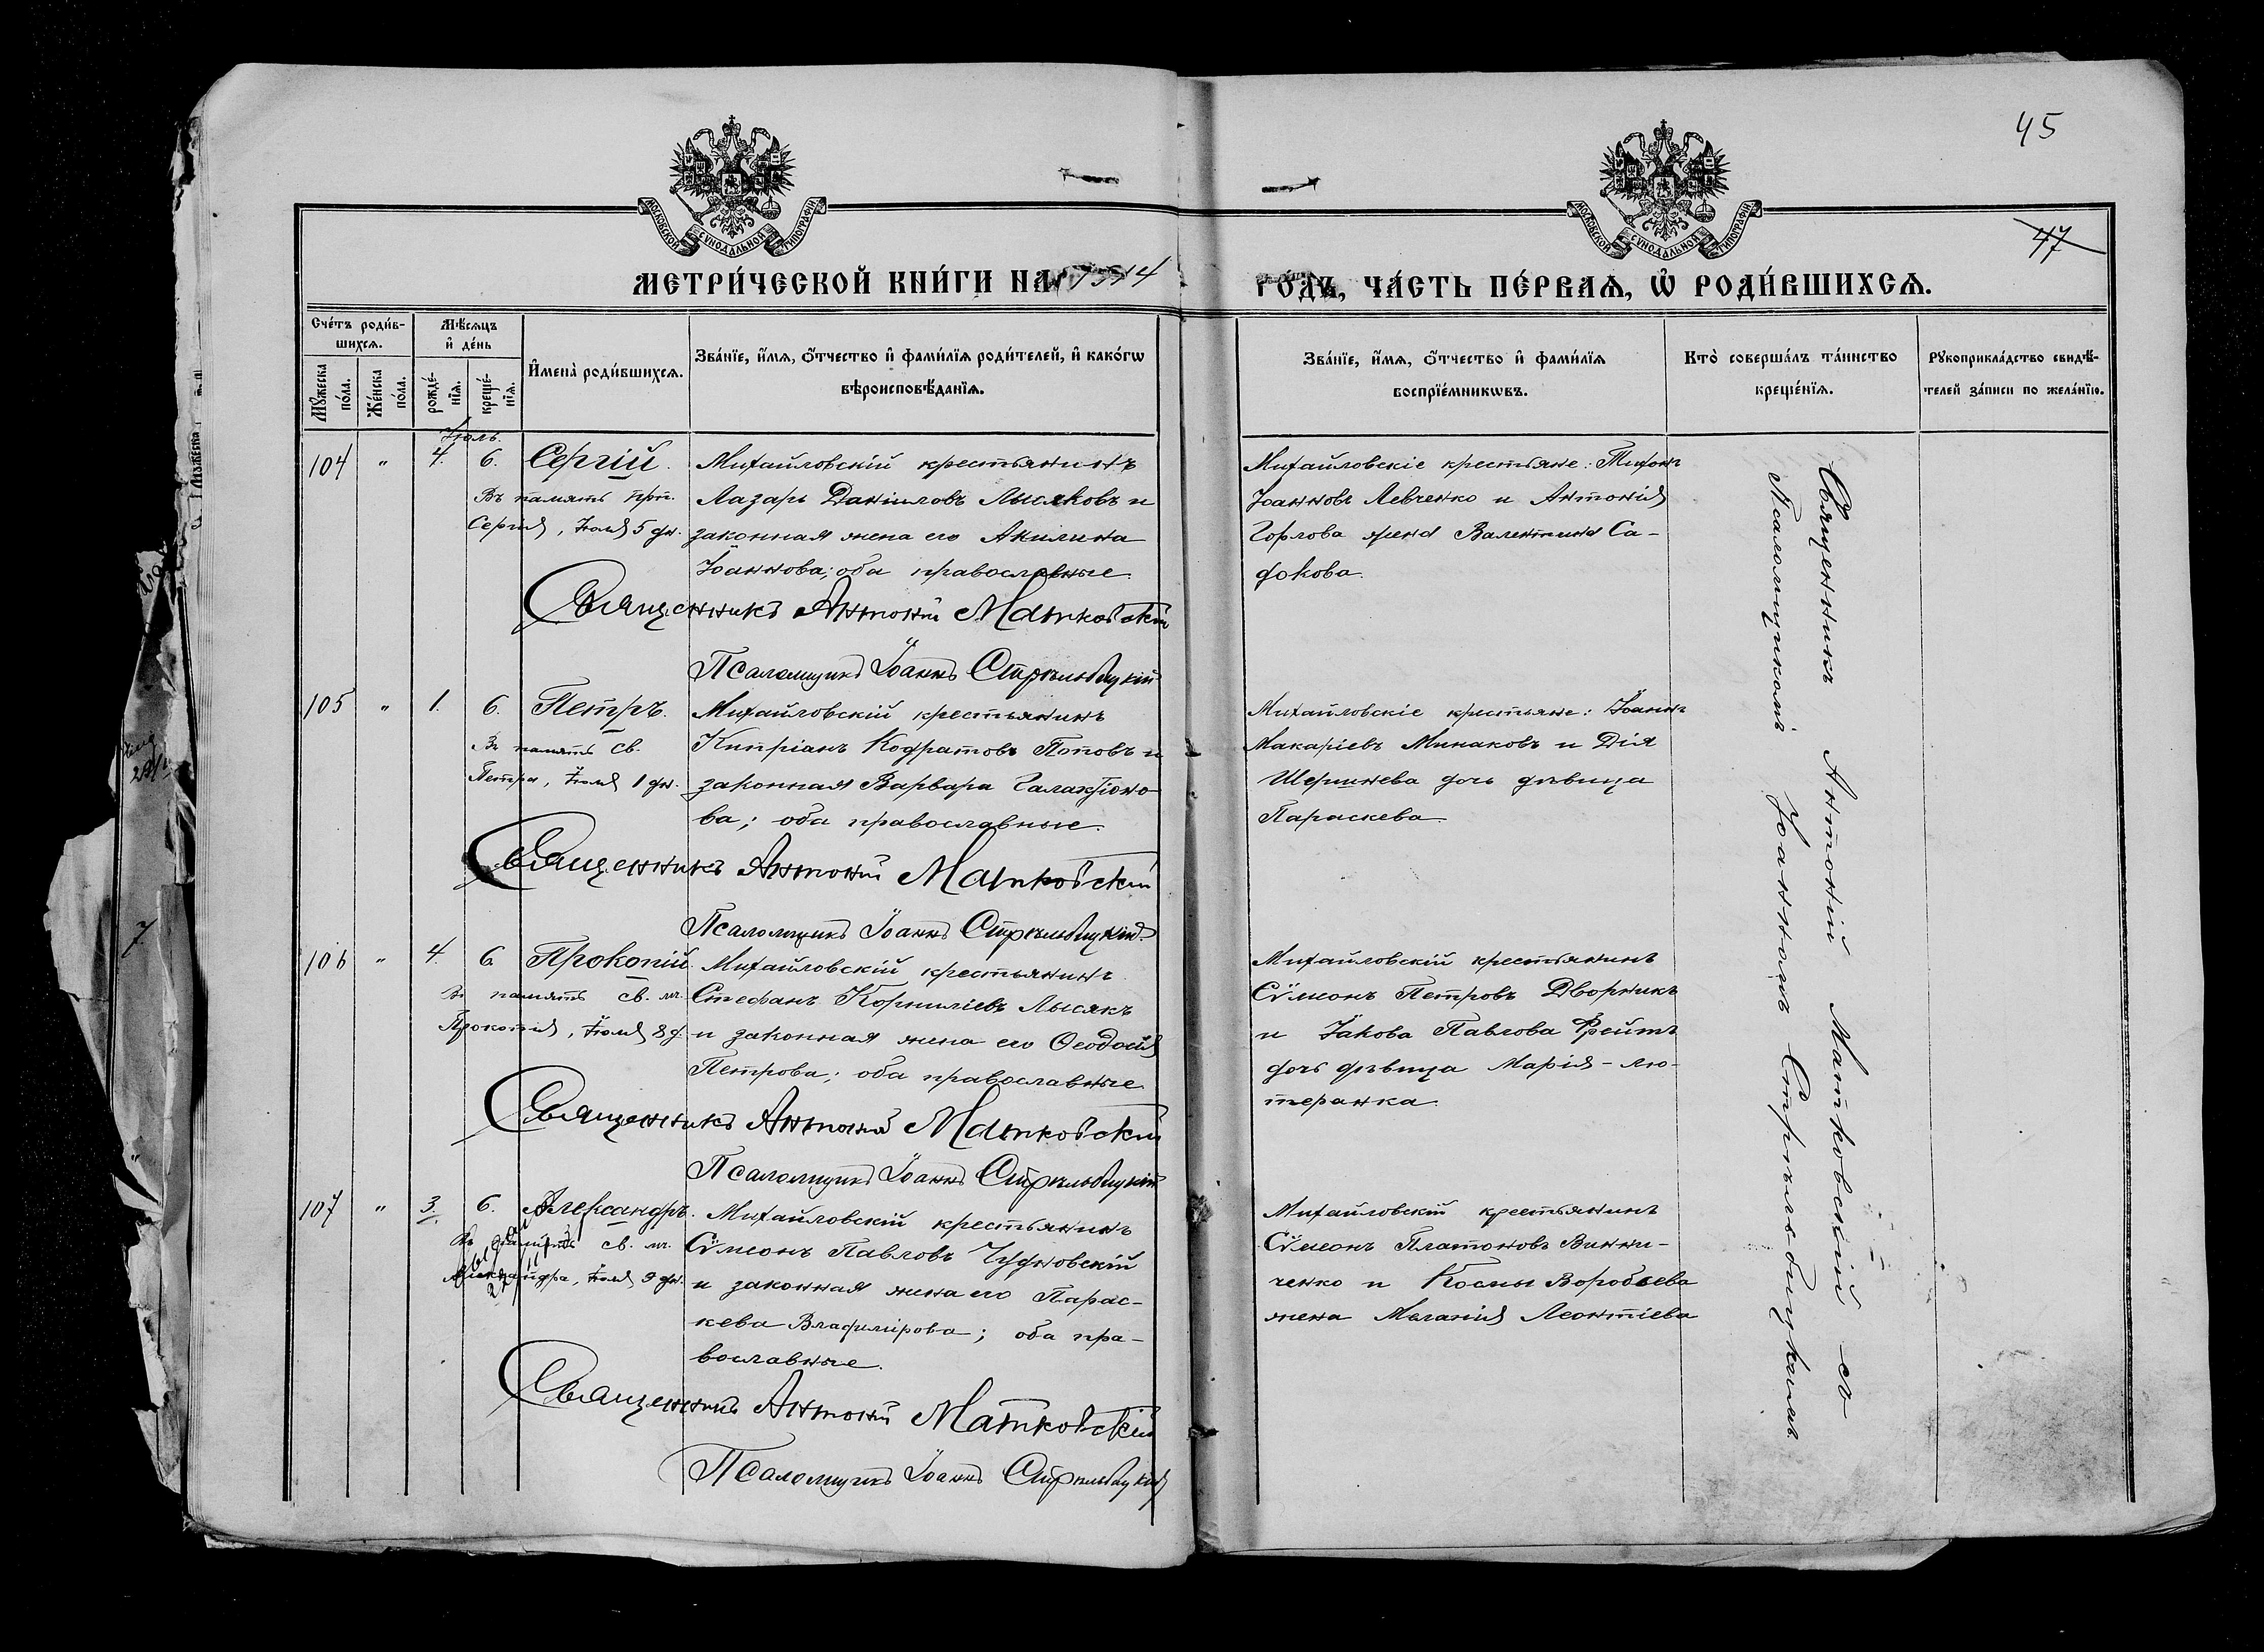 45
47
МОСКОВСКОЙ СѴНОДАЛЬНОЙ ТИПОГРАФІИ
МОСКОВСКОЙ СѴНОДАЛЬНОЙ ТИПОГРАФІИ
МЕТРИ́ЧЕСКОЙ КНИ́ГИ НА 1914
ГО́ДЪ, ЧА́СТЬ ПЕ́РВАѦ, Ѡ҆ РОДИ́ВШИХСѦ.
Сче́тъ роди́в-
шихсѧ.
Мꙋ́жеска по́ла.
Же́нска по́ла.
Мѣ́сѧцъ
и҆ де́нь
рожде́-
нїѧ.
креще́-
нїѧ.
И҆мена̀ роди́вшихсѧ.
Зва́нїе, и҆́мѧ, ѻ҆́тчество и҆ фами́лїѧ роди́телей, и҆ како́гѡ
вѣроисповѣ́данїѧ.
Зва́нїе, и҆́мѧ, ѻ҆́тчество и҆ фами́лїѧ
воспрїе́мникѡвъ.
Кто̀ соверша́лъ та́инство
креще́нїѧ.
Рꙋкоприкла́дство свидѣ́-
телей за́писи по жела́нїю.
Іюль.
104 " 4. 6. Сергій.
Въ память прп.
Сергія, Іюля 5 дн.
Михайловскій крестьянинъ
Лазарь Даніиловъ Лысяковъ и
законная жена его Акилина
Іоаннова; оба православные.
Священникъ Антоній Матковскій
Псаломщикъ Іоаннъ Стрѣльбицкій
Михайловскіе крестьяне: Тихонъ
Іоанновъ Левченко и Антонія
Горлова жена Валентина Са-
докова.
105 " 1. 6. Петръ.
Въ память св.
Петра, Іюля 1 дн.
Михайловскій крестьянинъ
Кипріанъ Кодратовъ Поповъ и
законная Варвара Галактіоно-
ва; оба православные.
Священникъ Антоній Матковскій
Псаломщикъ Іоаннъ Стрѣльбицкій
Михайловскіе крестьяне: Іоаннъ
Макаріевъ Минаковъ и Дія
дочь дѣвица
Параскева.
106 " 4. 6. Прокопій.
Въ память св. м.
Прокопія, Іюля 8 д.
Михайловскій крестьянинъ
Стефанъ Корниліевъ Лысякъ
и законная жена его Ѳеодосія
Петрова; оба православные
Священникъ Антоній Матковскій
Псаломщикъ Іоаннъ Стрѣльбицкій
Михайловскій крестьянинъ
Сѵмеонъ Петровъ Дворникъ
и Іакова Павлова Фрейтъ
дочь дѣвица Марія - лю-
теранка.
107 " 3. 6. Александръ.
Въ память св. м.
Александра, Іюля 9 дн.
Михайловскій крестьянинъ
Сѵмеонъ Павловъ Чудновскій
и законная жена его Парас-
кева Владимірова; оба пра-
вославные.
Священникъ Антоній Матковскій
Псаломщикъ Іоаннъ Стрѣльбицкій
Михайловскій крестьянинъ
Сѵмеонъ Платоновъ Винни-
ченко и Космы Воробьева
жена Меланія Леонтіева
Священникъ Антоній Матковскій съ
Псаломщикомъ Іоанномъ Стрѣльбицкимъ